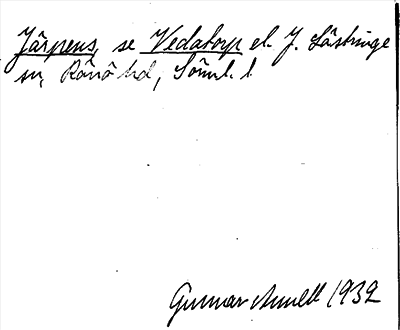 Järpens, se Vedatorp el. J. Lästringe
sn, Rönö hd, Söml. l
Gunnar Amell 1932